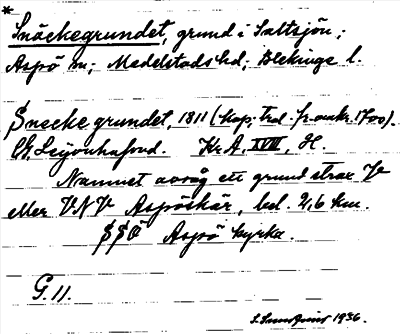 *
Snäckegrundet, grund i Saltsjön;
Aspö sn; Medelstads hd; Blekinge l.
Sneckegrundet, 1811 (kop; trol. fr. omkr. 1700).
G. Leijonhufvud. Kr. A. XVIII, H.
Namnet avsåg ett grund strax V
eller VNV Aspöskär, bel. 2,6 km.
SSÖ Aspö kyrka.
G. 11.
1936.